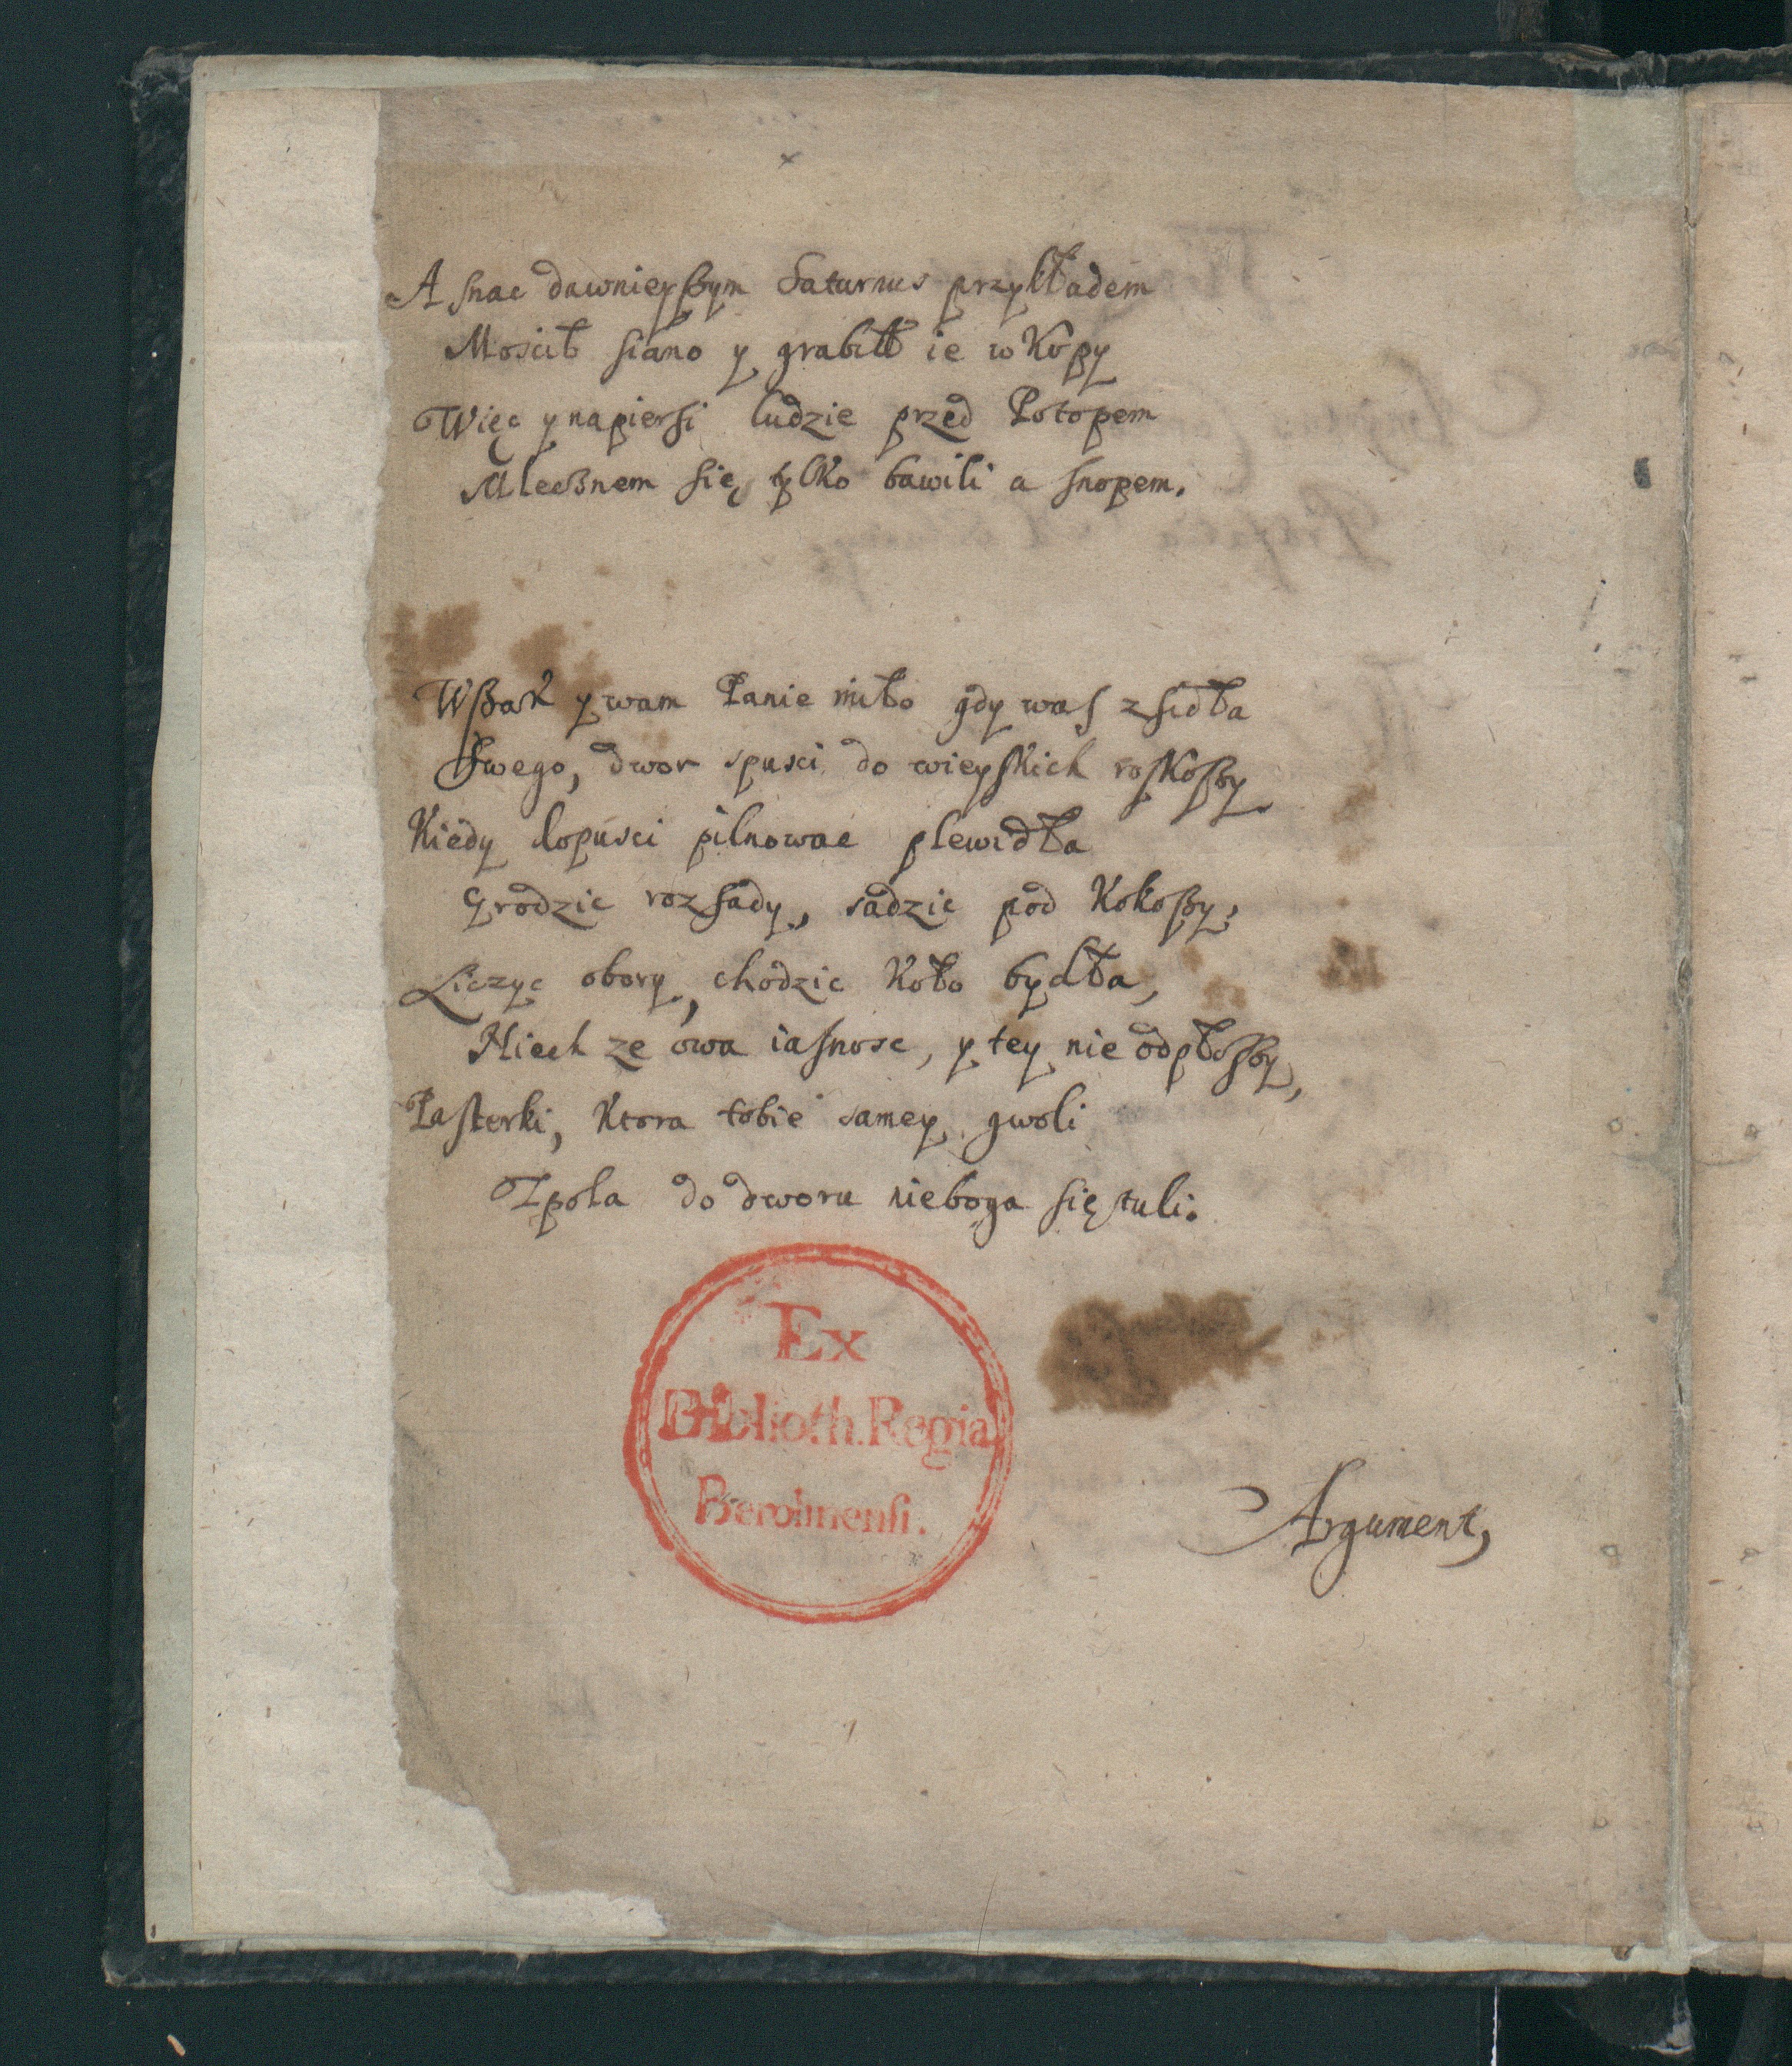 A snac dawnieyßym Saturnus przykładem
Mościł siano y grabił ie w Kopy
Więc y napiersi ludzie przed Potopem
Mlecßnem się tylko bawili a snopem.
Wßak y wam Panie miło gdy was z sidła
Swego, dwor spusci do wieyskich roskoßy
Kiedy dopusci pilnowac plewidła
Grodzic rozsady, sadzic pod Kokoßy,
Liczyc obory, chodzic Koło bydła,
Niech ze owa iasnosc, y tey nie odpłoßy,
Pasterki, Ktora tobie samey gwoli
Z pola do dworu nieboga się tuli.
Ex
Biblioth. Regia
Berolinensi.
Argument,